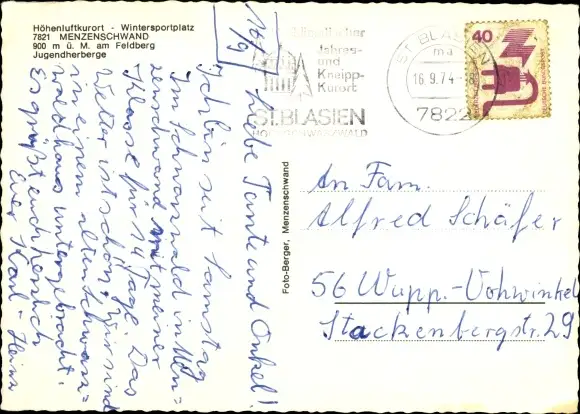 Höhenluftkurort - Wintersportplatz
7821 MENZENSCHWAND
900 m ü. M. am Feldberg
Jugendherberge
16/9
Liebe Tante und Onkel!
Ich bin seit Samstag
im Schwarzwald in Men=
zenschwand mit meiner
Klasse für 14 Tage. Das
Wetter ist schön. Wir sind
in einem alten Schwarz=
waldhaus untergebracht.
Es grüßt euch herzlich
Euer Karl-Heinz
Foto-Berger, Menzenschwand
Jahres-
und
Kneipp-
Kurort
ST. BLASIEN
HOCHSCHWARZWALD
ST. BLASIEN
ma
16.9.74
7822
40
An Fam.
Alfred Schäfer
56 Wupp.-Vohwinkel
Stackenbergstr. 29